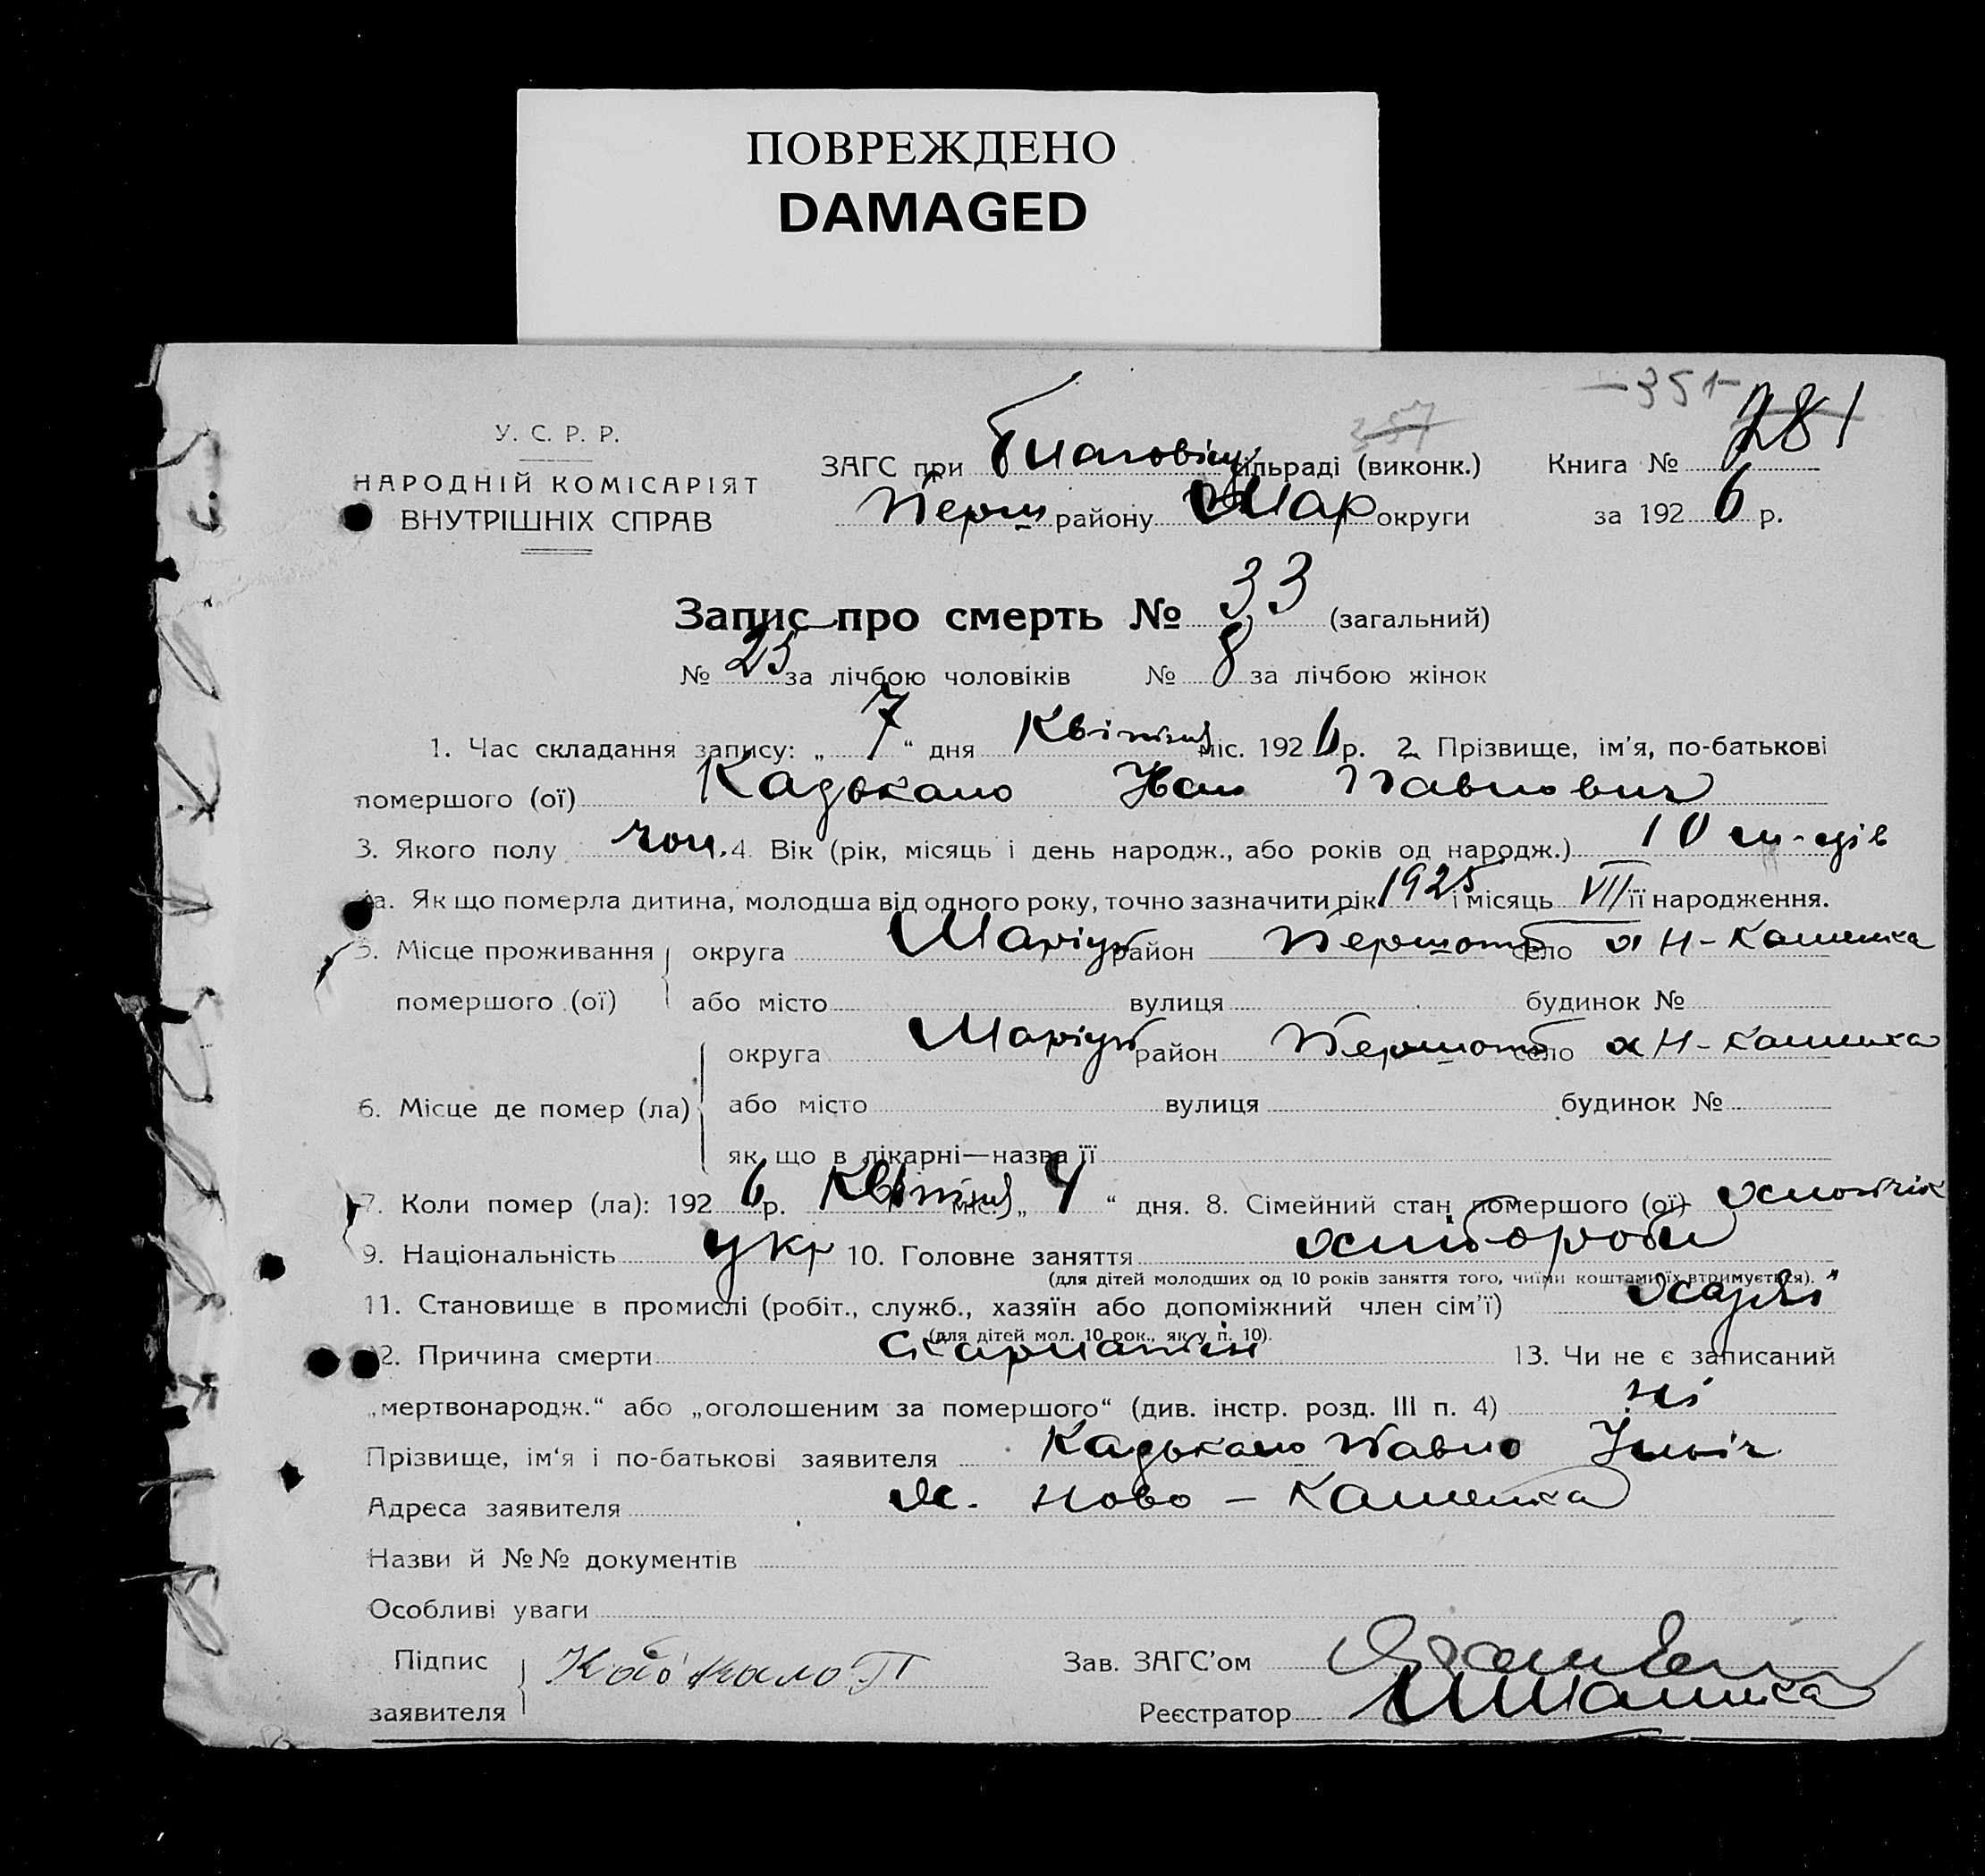 ПОВРЕЖДЕНО
DAMAGED
-351-
357
281
У. С. Р. Р.
НАРОДНІЙ КОМІСАРІЯТ
ВНУТРІШНІХ СПРАВ
ЗАГС при Благовіщ сільраді (виконк.) Книга №
Перш району Мар округи за 1926 р.
Запис про смерть № 33 (загальний)
№ 25 за лічбою чоловіків № 8 за лічбою жінок
1. Час складання запису: „ 7 “ дня Квітня міс. 1926 р. 2. Прізвище, ім'я, по-батькові
помершого (ої) Кадькало Іван Павлович
3. Якого полу чол. 4. Вік (рік, місяць і день народж., або років од народж.) 10 м-ців
4а. Як що померла дитина, молодша від одного року, точно зазначити рік 1925 і місяць VII її народження.
5. Місце проживання округа Маріуп район Першотр село х Н-Каменка
помершого (ої) або місто вулиця будинок №
округа Маріуп район Першотр село х Н-Каменка
6. Місце де помер (ла) або місто вулиця будинок №
як що в лікарні—назва її
7. Коли помер (ла): 1926 р. Квітня міс. „ 4 “ дня. 8. Сімейний стан помершого (ої)
9. Національність укр 10. Головне заняття хлібороб
(для дітей молодших од 10 років заняття того, чиїми коштами їх втримується).
11. Становище в промислі (робіт., служб., хазяїн або допоміжний член сім'ї)
(для дітей мол. 10 рок., як у п. 10).
12. Причина смерти Скарлатін 13. Чи не є записаний
„мертвонародж.“ або „оголошеним за помершого“ (див. інстр. розд. III п. 4) ні
Прізвище, ім'я і по-батькові заявителя Кадькало Павло Ілліч
Адреса заявителя х. Ново - Каменка
Назви й №№ документів
Особливі уваги
Підпис заявителя Кадькало П Зав. ЗАГС'ом
Реєстратор